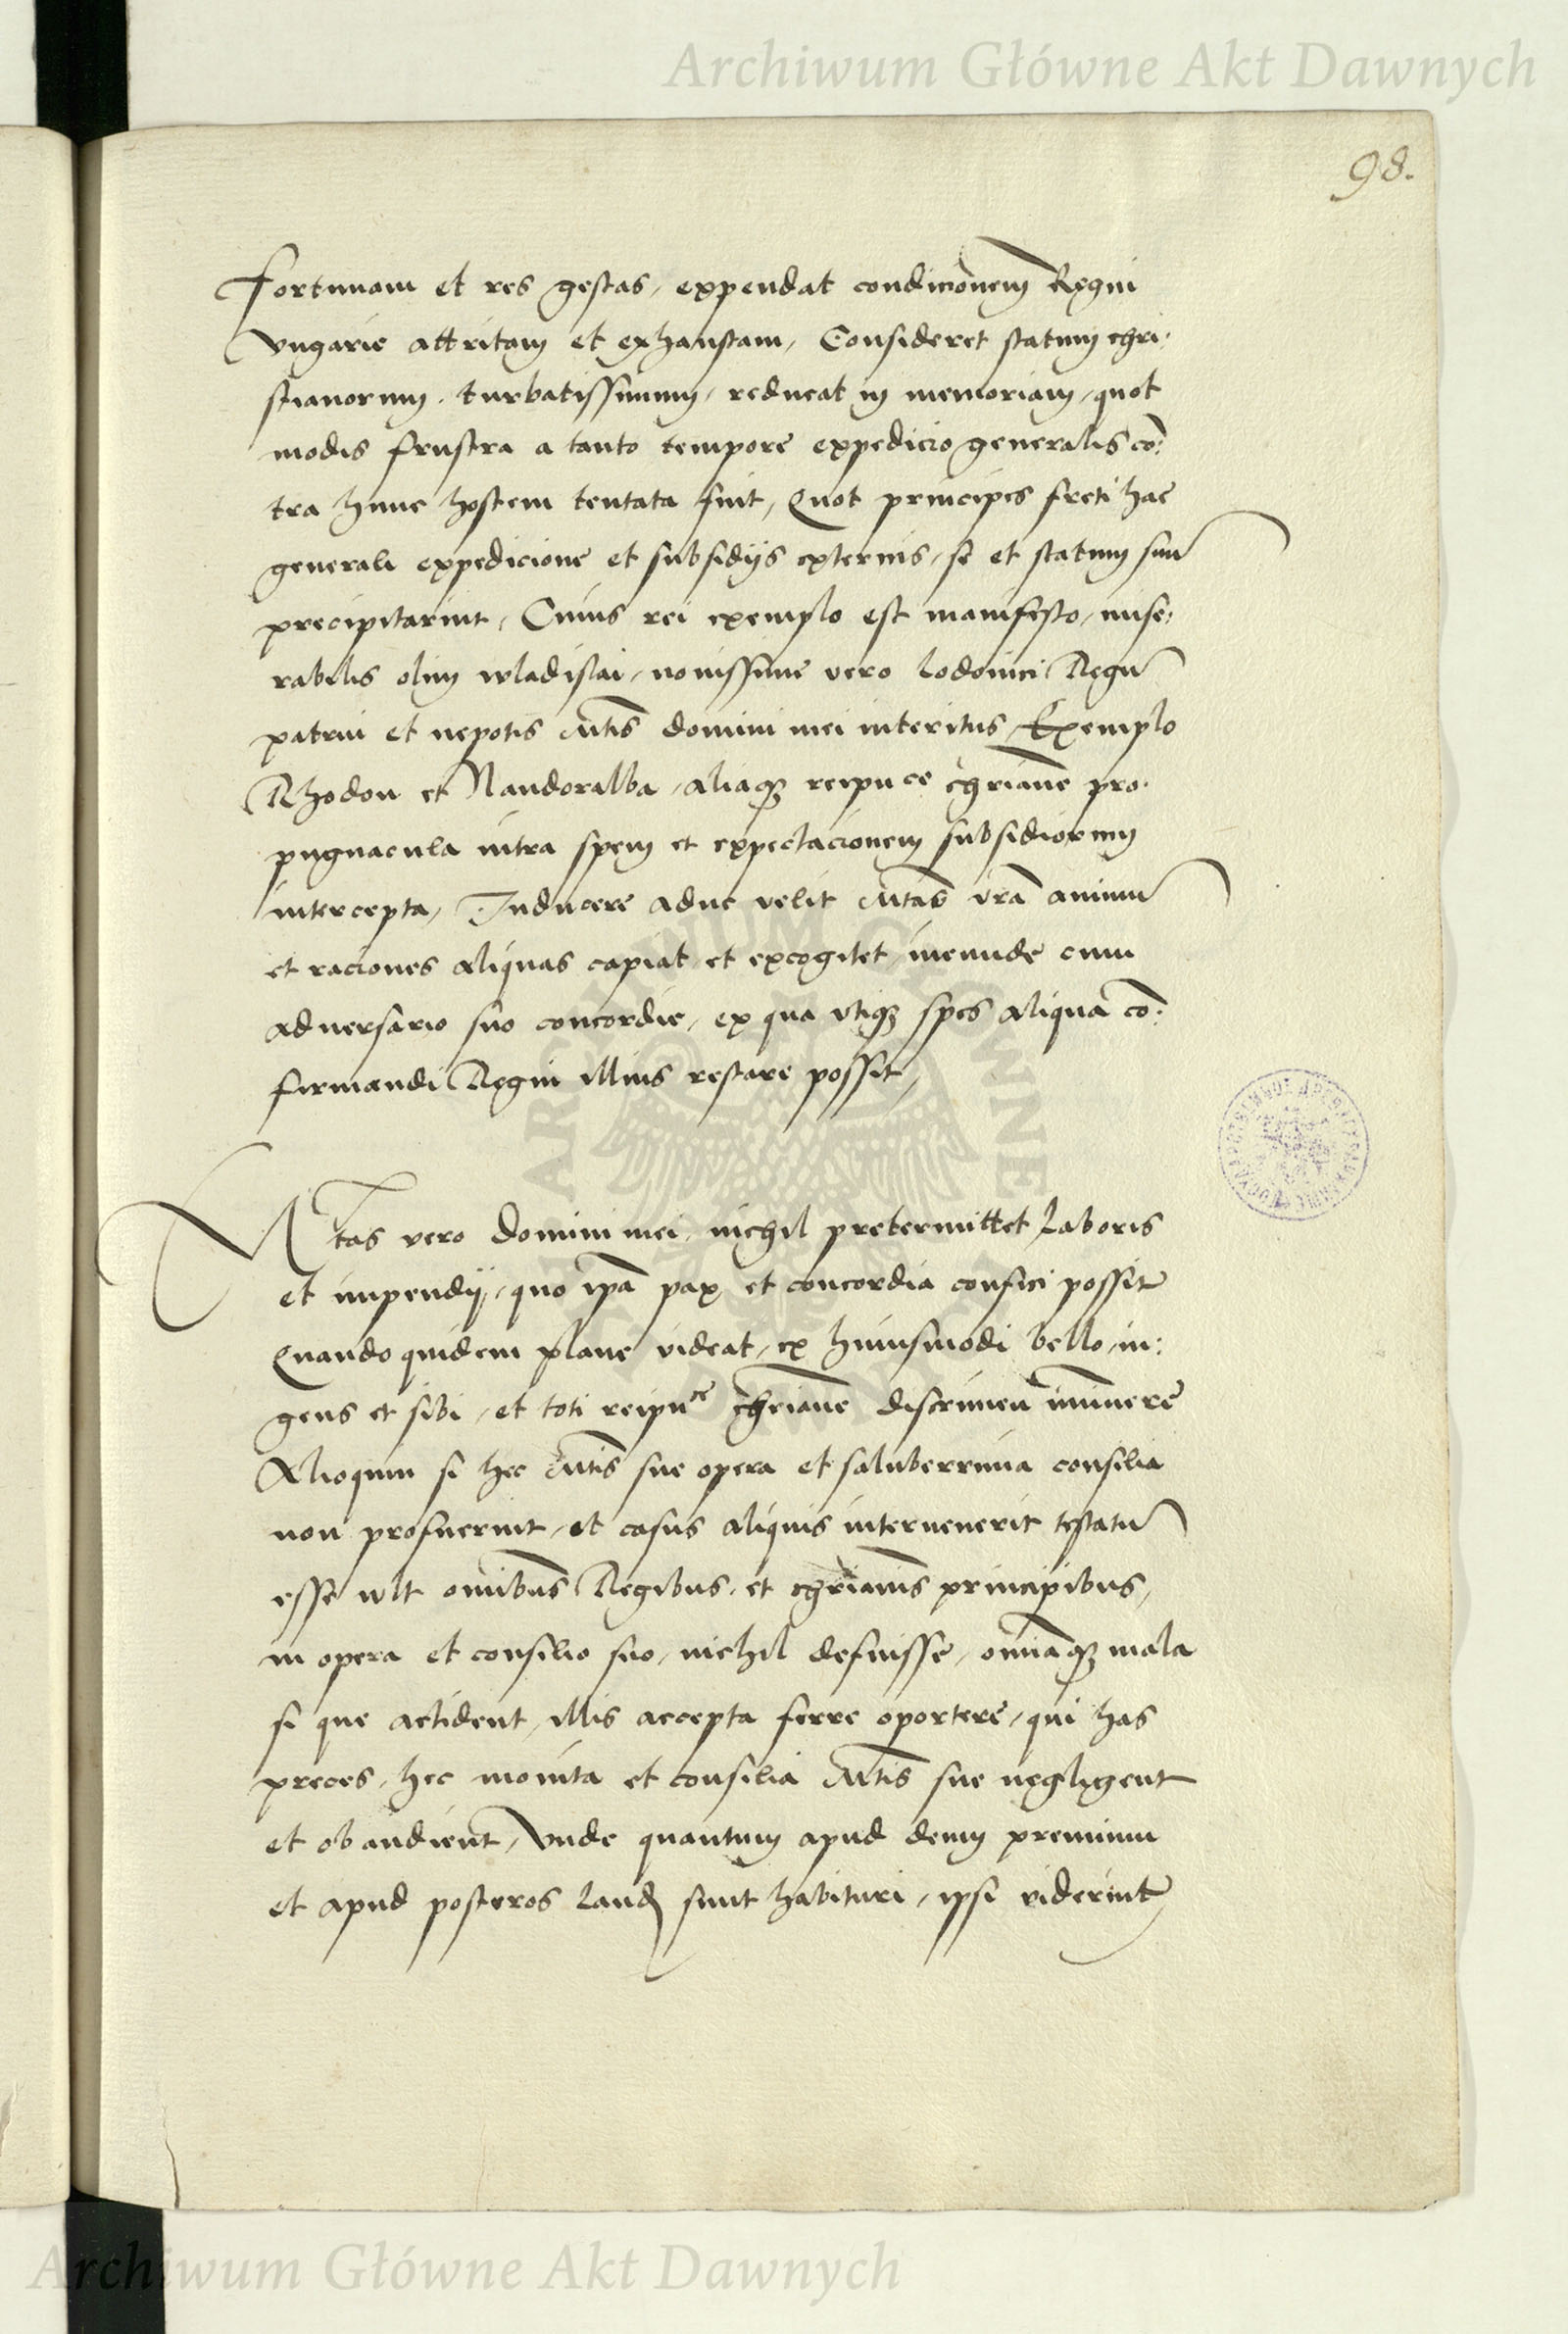 Archiwum Główne Akt Dawnych
98.
Fortunam et res gestas, expendat condicionem Regni
Vngarie attritam et exhaustam, Consideret statum chri:
stianorum. turbatissimum, reducat in memoriam, quot
modis frustra a tanto tempore expedicio generalis cō:
tra hunc hostem tentata fuit, Quot principes freti hac
generali expedicione et subsidijs externis, se et statum suū
precipitarint, Cuius rei exemplo est manifesto, mise:
rabilis olim wladislai, nouissime vero Lodouici Regū
patrui et nepotis Mtis domini mei interitus, Exemplo
Rhodon et Nandoralba, aliaqꝫ reipuce chriane pro:
pugnacula intra spem et expectacionem subsidiorum
intercepta, Inducere aduc velit Mtas vrā animū
et raciones aliquas capiat et excogitet, ineunde cum
aduersario suo concordie, ex qua vtiqꝫ spes aliqua cō:
firmandi Regni illius restare possit,
Mtas vero domini mei, nichil pretermittet Laboris
et impendij, quo ipā pax et concordia confici possit
Quando quidem plane videat, ex huiusmodi bello, in:
gens et sibi, et toti reipuce chriane discrimen iminere
Alioquin si hec Mtis sue opera et saluberrima consilia
non profuerint, et casus aliquis interuenerit testatū
esse vult omibus Regibus, et chrianis principibus,
in opera et consilio suo, nichil defuisse, omiaqꝫ mala
si que accident, illis accepta ferre oportere, qui has
preces, hec monita et consilia Mtis sue negligent
et obaudient, Vnde quantum apud deum premium
et apud posteros Laudis sunt habituri, ipsi viderint
Archiwum Główne Akt Dawnych